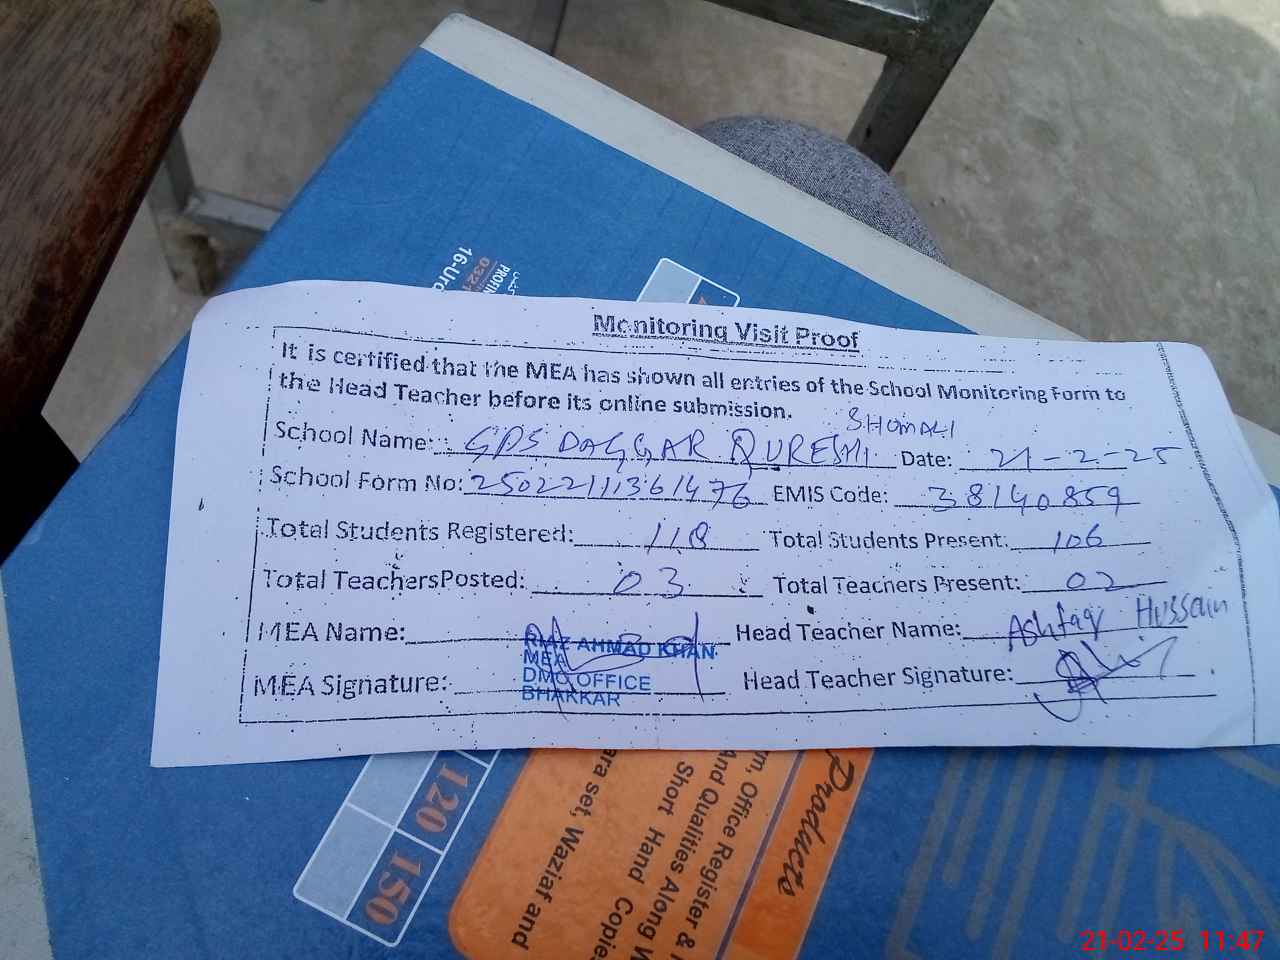 16-Urd
0321
PROFIN
Monitoring Visit Proof
It is certified that the MEA has shown all entries of the School Monitoring Form to
the Head Teacher before its online submission.
School Name: GPS DAGGAR QURESHI SHOMALI Date: 21-2-25
School Form No: EMIS Code: 38140859
Total Students Registered: 118 Total Students Present: 106
Total TeachersPosted: 03 Total Teachers Present: 02
MEA Name: Head Teacher Name: Ashfaq Hussain
MEA Signature: Head Teacher Signature:
RMZ AHMAD KHAN
MEA
DMO OFFICE
BHAKKAR
120
150
Products
rm, Office Register &
And Qualities Along W
Short Hand Copie
ara set, Waziaf and
21-02-25 11:47